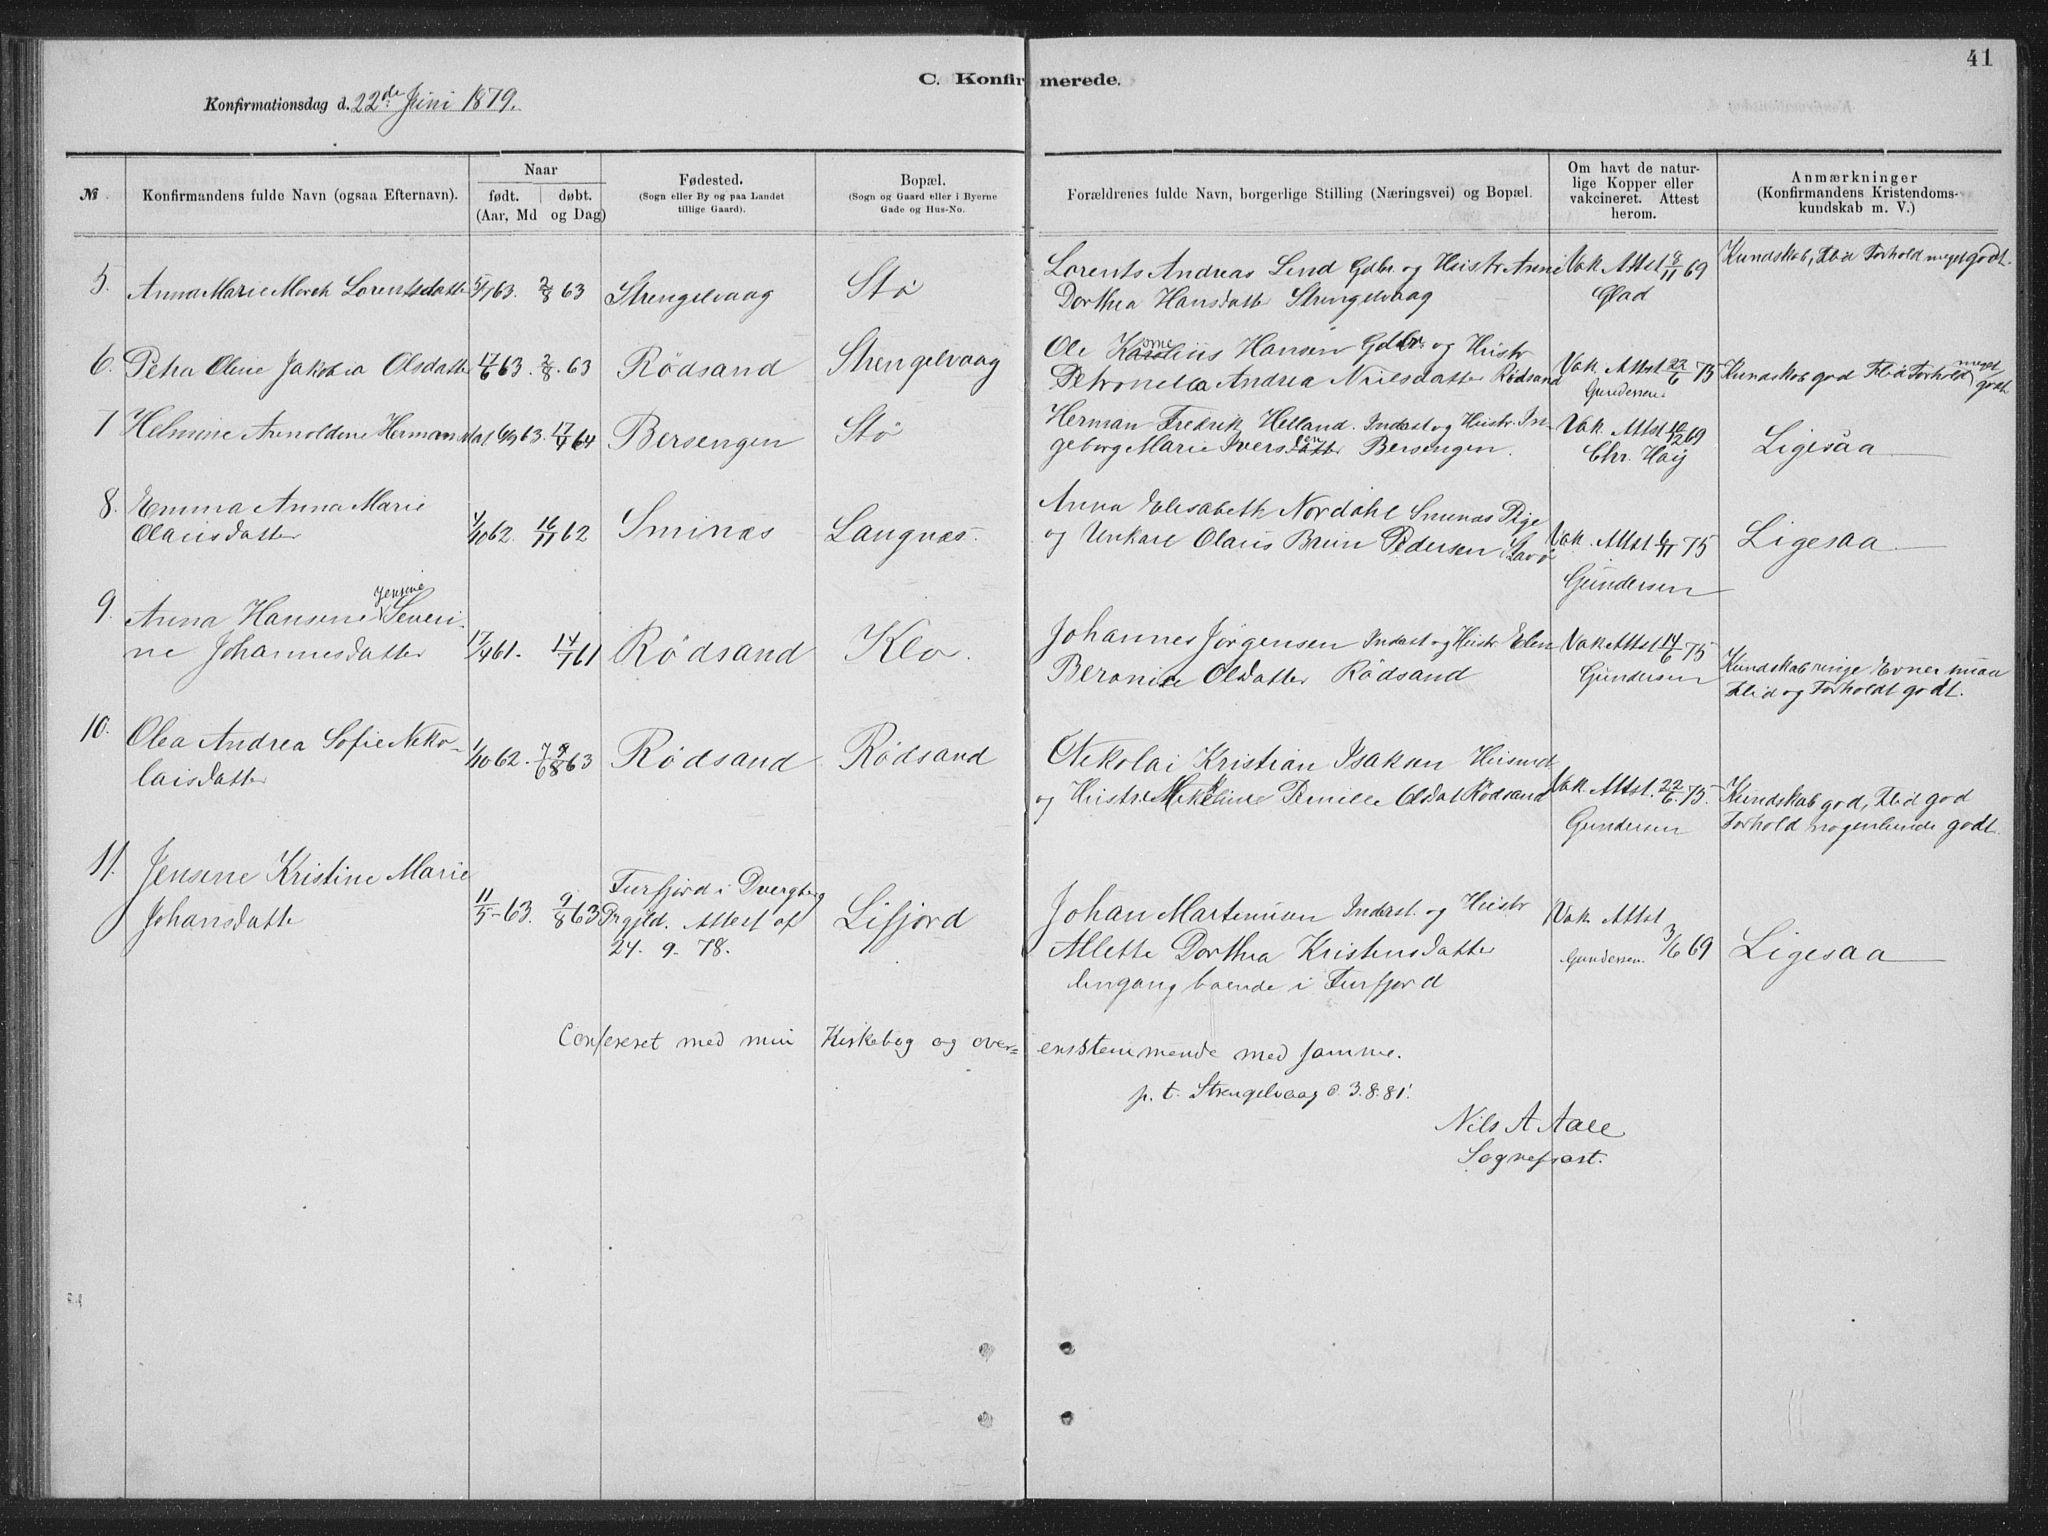 41
C. Konfirmerede.
Konfirmationsdag d. 22de Juni 1879.
№
Konfirmandens fulde Navn (ogsaa Efternavn).
Naar
født. døbt.
(Aar, Md og Dag)
Fødested.
(Sogn eller By og paa Landet
tillige Gaard).
Bopæl.
(Sogn og Gaard eller i Byerne
Gade og Hus-No.
Forældrenes fulde Navn, borgerlige Stilling (Næringsvei) og Bopæl.
Om havt de natur-
lige Kopper eller
vakcineret. Attest
herom.
Anmærkninger
(Konfirmandens Kristendoms-
kundskab m. V.)
5. Anna Marie Lorentsdatter 5/7 63. 2/8 63 Strengelvaag Stø
Lorents Andreas Lind Gdbr. og Hustr Anne
Dorthea Hansdatter Strengelvaag
Vak Attst 8/11 69
Glad
Kundskab, Flid Forhold meget godt.
6. Petra Oline Jakobia Olsdatter 17/6 63. 2/8. 63 Rödsand Strengelvaag
Ole Hansen Gdbr. og Hustr
Petronella Andrea Nielsdatter Rödsand
Vak. Attst 22/6 75
Gundersen
Kundskab god Flid Forhold meget godt
7 Helmine Arnoldine Hermansdat 6/9 63. 17/4 64 Bersengen Stö
Herman Fredrik Helland. Inderst og Hustr. In-
geborg Marie Iversen Bersengen.
Vak. Attst 10/12 69
Chr. Høy
Ligesaa
8. Emma Anna Marie
Olausdatter 1/10 62. 16/11 62 Sminæs Langnæs
Anna Elisabeth Nordahl Smines Pige
og Unkarl Olaus Brun Pedersen
Vak. Attst 6/11 75
Gundersen
Ligesaa
9. Anna Hansine Jensine Severi-
ne Johannesdatter 17/4 61. 14/7 61 Rödsand Klo.
Johannes Jørgensen Inderst og Hustr Elen
Beronice Olsdatter Rödsand
Vak Attst 14/6 75
Gundersen
Kundskab ringe Evner smaa
Flid og Forholdt godt.
10. Olea Andrea Sofie Neko-
laisdatter 1/10 62. 63 Rödsand Rödsand
Nekolai Kristian Isaksen Husmd
og Hustr Pernille Olsdat Rödsand
Vak. Attst. 22/6. 75.
Gundersen
Kundskab god, Flid god
Forhold nogenlunde godt.
11. Jensine Kristine Marie
Johansdatter 11/5 63. 9/8 63 Furfjord i Dvergberg
Prgjld. Attest af
24. 9. 78.
Lifjord
Johan Martinusen Inderst. og Hustr
Allette Dorthea Kristensdatter
dengang boende i Furfjord
Vak. Attst
Gundersen. 3/6 69
Ligesaa
Confereret med min Kirkebog og over- ensstemmende med samme.
p. t. Strengelvaag d. 3.8.81.
Nils A Aall
Sogneprest.